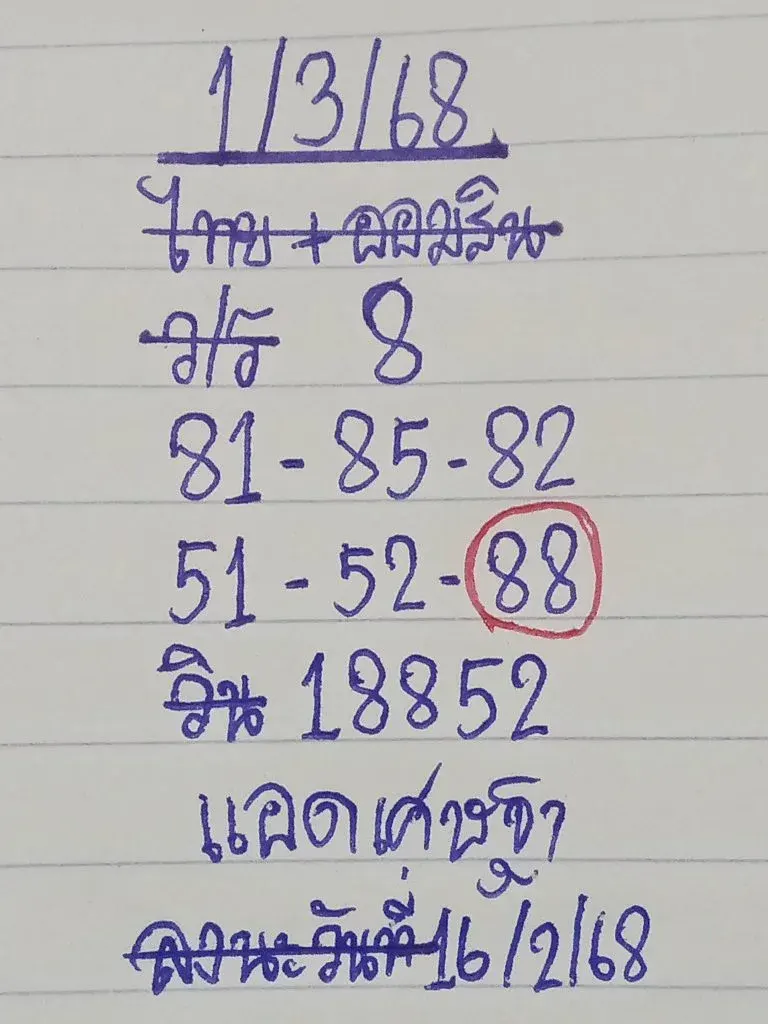 1/3/68
ไทย + ออมสิน
ว/ร 8
81 - 85 - 82
51 - 52 - 88
วิน 18852
แอดเศรษฐา
ลงนะวันที่ 16/2/68